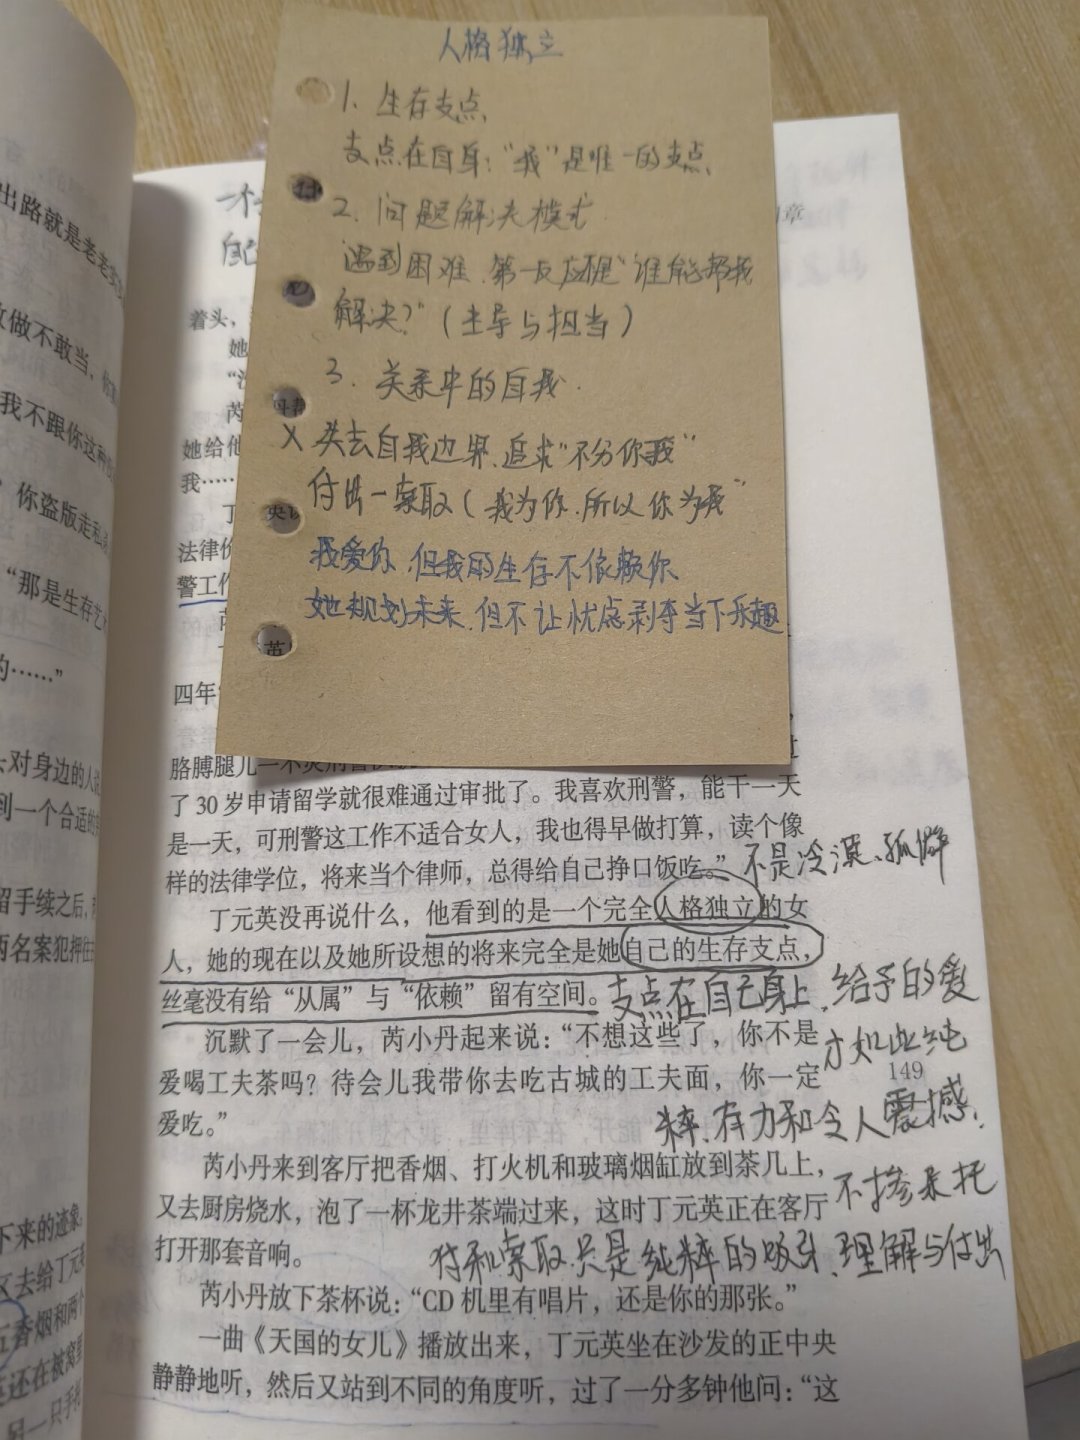 人格独立
1. 生存支点
支点在自身："我"是唯一的支点
2. 问题解决模式
遇到困难、第一反应不是"谁能帮我
解决？"（主导与担当）
3. 关系中的自我
X 失去自我边界、追求"不分你我"
付出—索取（我为你、所以你为我"
我爱你、但我的生存不依赖你
她规划未来、但不让忧虑剥夺当下乐趣
出路就是老老实
做不敢当，
我不跟你这种
你盗版走私
"那是生存艺
的……"
对身边的人
到一个合适的
留手续之后，
两名案犯押
下来的迹象
去给丁元
香烟和两个
还在被窝
另一只手
章
着头，
她
芮
她给他
我……
丁
法律
警工作
四年
胳膊腿儿一不
了 30 岁申请留学就很难通过审批了。我喜欢刑警，能干一天
是一天，可刑警这工作不适合女人，我也得早做打算，读个像
样的法律学位，将来当个律师，总得给自己挣口饭吃。"
不是冷漠、孤僻
丁元英没再说什么，他看到的是一个完全人格独立的女
人，她的现在以及她所设想的将来完全是她自己的生存支点，
丝毫没有给"从属"与"依赖"留有空间。
支点在自己身上、给予的爱
亦如此纯
粹、有力和令人震撼，
不掺杂托
付和索取、只是纯粹的吸引、理解与付出
沉默了一会儿，芮小丹起来说："不想这些了，你不是
爱喝工夫茶吗？待会儿我带你去吃古城的工夫面，你一定
爱吃。"
149
芮小丹来到客厅把香烟、打火机和玻璃烟缸放到茶几上，
又去厨房烧水，泡了一杯龙井茶端过来，这时丁元英正在客厅
打开那套音响。
芮小丹放下茶杯说："CD 机里有唱片，还是你的那张。"
一曲《天国的女儿》播放出来，丁元英坐在沙发的正中央
静静地听，然后又站到不同的角度听，过了一分多钟他问："这